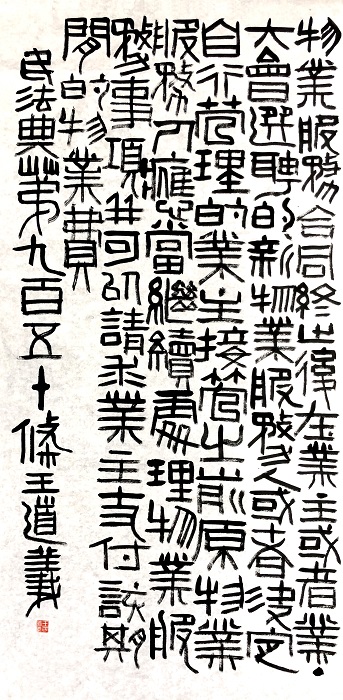 物業服務合同終止後在業主或者業丶
大會選聘的新物業服務人或者決定
自行管理的業主接管之前原物業
服務人應當繼續處理物業服
務事項并可以請求業主支付該期
間的物業費
民法典第九百五十條王道義